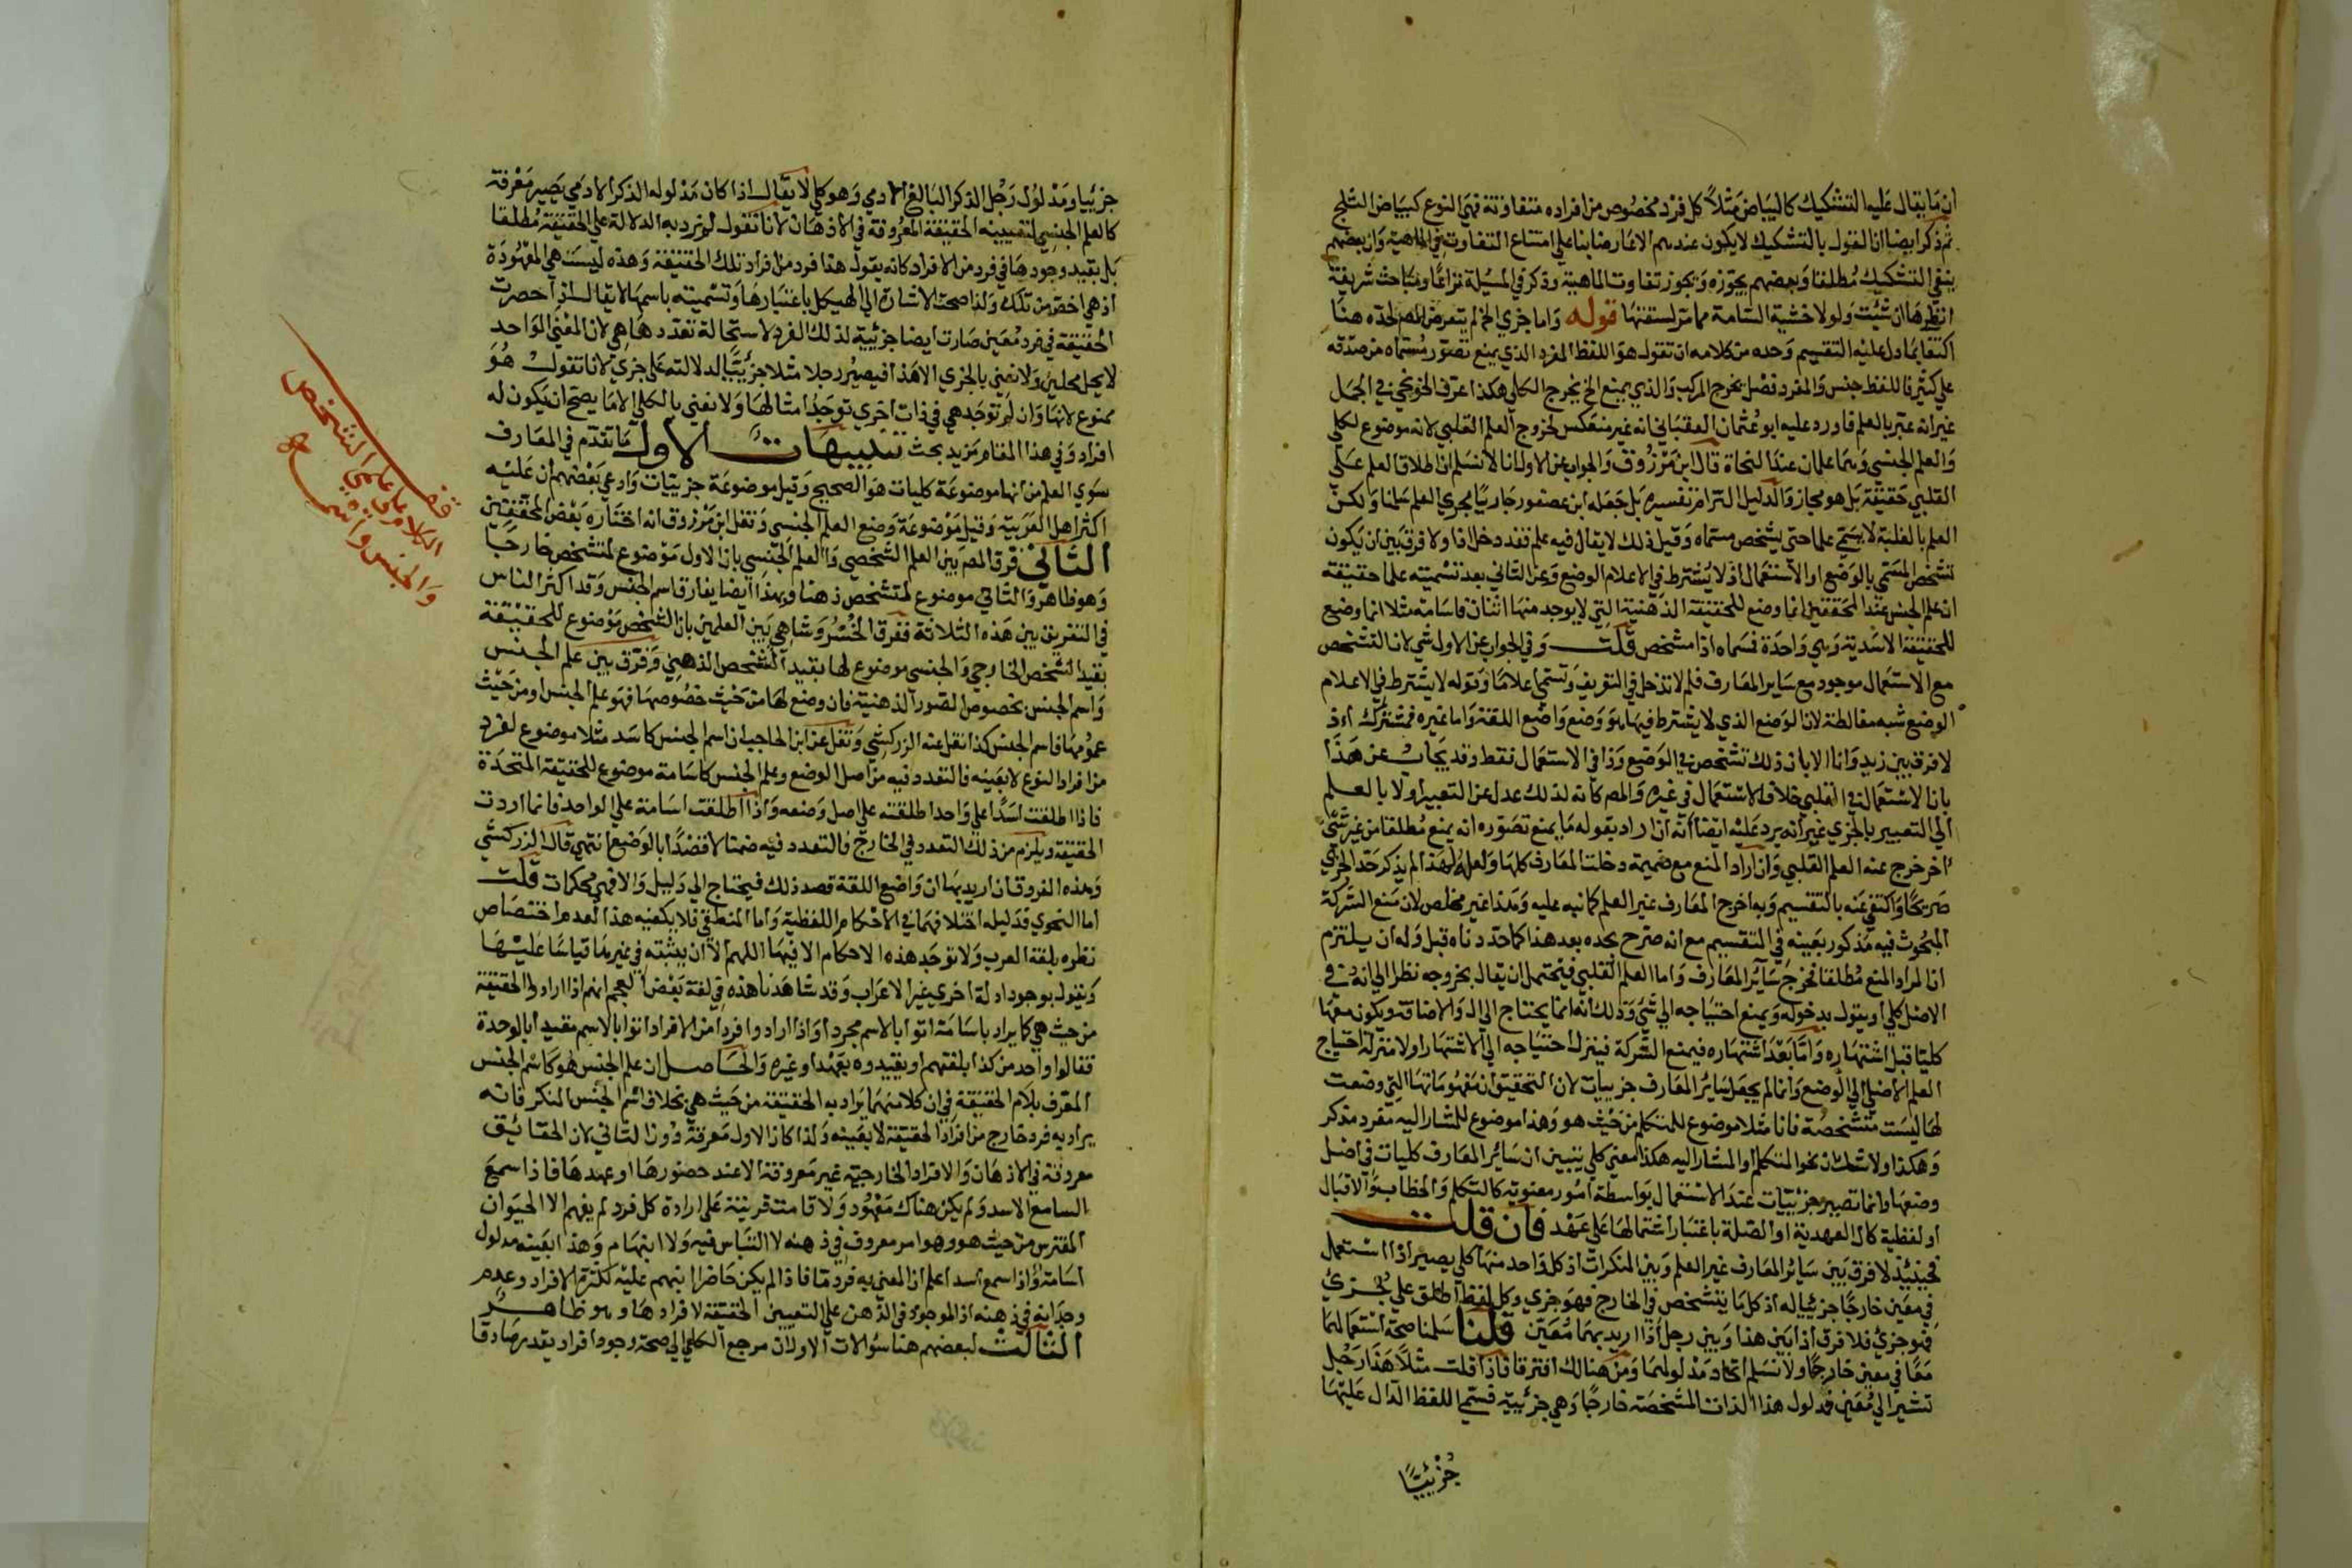 ان ما يقال عليه التشكيك كالبياض مثلاً كل فرد مخصوص من افراده متفاوتة فهي النوع كبياض الثلج
ثم ذكر ايضا ان القول بالتشكيك لا يكون عندهم الا عارضا بنا علي امتناع التفاوت في الماهية وان بعضهم
ينفي التشكيك مطلقا وبعضهم يجوزه ويجوز تفاوت الماهية وذكر في المسيلة نزاعا ومباحث شريفة
انظرها ان شئت ولولا خشية السامة مما مر لسقتها قوله واما جزي الخ لم يتعرض المص لحده هنا
اكتفا بما دل عليه التقسيم وحده من كلامه ان تقول هو اللفظ المفرد الذي يمنع تصور مسماه من صدقه
علي كثير فاللفظ جنس والمفرد فصل يخرج المركب والذي يمنع الخ يخرج الكلي هكذا عرف الخونجي في الجمل
غير انه عبر بالعلم فاورد عليه ابو عثمان العقباني انه غير منعكس لخروج العلم القلبي لانه موضوع لكلي
والعلم الجنسي وهما علمان عند النحاة قال ابن مرزوق والجواب عن الاول انا لا نسلم ان اطلاق العلم علي
القلبي حقيقة بل هو مجاز والدليل التزام تفسيره بل جعله ابن عصفور جاريا مجري العلم سلمنا ولكن
العلم بالغلبة لا يسمي علما حتي يشخص مسماه وقيل ذلك لا يقال فيه علم فقد دخل اذا ولا فرق بين ان يكون
تشخص المسمي بالوضع او الاستعمال اذ لا يشترط في الاعلام الوضع وعن الثاني بعد تسميته علما حقيقة
ان علم الجنس عند المحققين انما وضع للحقيقة الذهنية التي لا يوجد منها اثنان فاسامة مثلا انما وضع
للحقيقة الاسدية وهي واحدة فمسماه اذا مشخص قلت وفي الجواب عن الاول شي لان التشخص
مع الاستعمال موجود مع ساير المعارف فلم لا تدخل في التعريف وتسمي اعلاما وقوله لا يشترط في الاعلام
الوضع شبه مغالطة لان الوضع الذي لا يشترط فيها هو وضع واضع اللغة واما غيره فمشترك اذ
لا فرق بين زيد وانا الا بان ذلك تشخص في الوضع وذا في الاستعمال فقط وقد يجاب عن هذا
بان الاستعمال في القلبي خلاف الاستعمال في غيره والمص كانه لذلك عدل عن التعبير اولا بالعلم
الي التعبير بالجزي غير انه يرد عليه ايضا انه ان اراد بقوله ما يمنع تصوره انه يمنع مطلقا من غير شي
اخر خرج عنه العلم القلبي وان اراد المنع مع ضميمة دخلت المعارف كلها ولعله لهذا لم يذكر حد الجزي
صريحا واكتفي عنه بالتقسيم وبه اخرج المعارف غير العلم كما نبه عليه وهذا غير مخلص لان منع الشركة
المبحوث فيه مذكور بعينه في التقسيم مع انه صرح بحده بعد هذا كما حددناه قبل وله ان يلتزم
ان المراد المنع مطلقا فخرج ساير المعارف واما العلم القلبي فيحتمل ان يقال بخروجه نظرا الي انه في
الاصل كلي او يقول بدخوله ويمنع احتياجه الي شي وذلك انه انما يحتاج الي ال والاضافة ويكونه معها
كليا قبل اشتهاره واما بعد اشتهاره فيمنع الشركة فينزل احتياجه الي الاشتهار اولا منزلة احتياج
العلم الاصلي الي الوضع وانما لم يجعل ساير المعارف جزييات لان التحقيق ان مفهوماتها التي وضعت
لها ليست متشخصة فانا مثلا موضوع للمتكلم من حيث هو وهذا موضوع للمشار اليه مفرد مذكر
وهكذا ولا شك ان نحو المتكلم او المشار اليه هكذا معني كلي يتبين ان ساير المعارف كليات في اصل
وضعها وانما تصير جزئيات عند الاستعمال بواسطة امور معنوية كالتكلم والخطاب والاقبال
او لفظية كال العهدية او الصلة باعتبار اشتمالها علي عهد فان قلت
فحينئذ لا فرق بين ساير المعارف غير العلم وبين المنكرات اذ كل واحد منها كلي يصير اذا استعمل
في معين خارجا جزئيا له اذ كل ما يتشخص في الخارج فهو جزي وكل لفظ اطلق علي جزئ
فهو جزئ فلا فرق اذا بين هذا وبين رجل اذا اريد بهما معين قلنا سلمنا صحة استعمالهما
معا في معين خارجا ولا نسلم اتحاد مدلولهما ومن هنالك افترقا فاذا قلت مثلا هذا رجل
تشير الي معين فمدلول هذا الذات المشخصة خارجا وهي جزئية فسمي اللفظ الدال عليها
جزئيا
جزئيا ومدلول رجل الذكر البالغ الادمي وهو كلي لا يقال اذا كان مدلوله الذكر الادمي يصير معرفة
كالعلم الجنسي لتعيينه الحقيقة المعروفة في الاذهان لانا نقول لم نرد به الدلالة علي الحقيقة مطلقا
بل بقيد وجودها في فرد من الافراد كانه يقول هذا فرد من افراد تلك الحقيقة وهذه ليست هي المعهودة
اذ هي اخص من تلك ولذا صحت الاشارة الي الهيكل باعتبارها وتسميته باسمها لا يقال اذا حصرت
الحقيقة في فرد معين صارت ايضا جزئية لذلك الفرد لاستحالة تعدد ها هي لان المعني الواحد
لا يحل محلين ولا نعني بالجزي الا هذا فيصير رجلا مثلا جزئيا لدلالته علي جزي لانا نقول هو
ممنوع لانها وان لم توجد هي في ذات اخري توجد امثالها ولا نعني بالكلي الا ما يصح ان يكون له
افراد وفي هذا المقام مزيد بحث تنبيهات الاول ما تقدم في المعارف
سوي العلم من انها موضوعة كليات هو الصحيح وقيل موضوعة جزييات وادعي بعضهم ان عليه
اكثر اهل العربية وقيل موضوعة وضع العلم الجنسي ونقل ابن مرزوق انه اختاره بعض المحققين
الثاني فرق المص بين العلم الشخصي والعلم الجنسي بان الاول موضوع لمتشخص خارجا
وهو ظاهر والثاني موضوع لمتشخص ذهنا وبهذا ايضا يفارق اسم الجنس وقد اكثر الناس
في التفريق بين هذه الثلاثة ففرق الخسروشاهي بين العلمين بان الشخص موضوع للحقيقة
بقيد الشخص الخارجي والجنسي موضوع لها بقيد التشخص الذهني وفرق بين علم الجنس
واسم الجنس بخصوص الصور الذهنية فان وضع لها من حيث خصوصها فهو علم الجنس او من حيث
عمومها فاسم الجنس كذا نقل عنه الزركشي ونقل عن ابن الحاجب ان اسم الجنس كاسد مثلا موضوع لفرد
من افراد النوع لا بعينه فالتعدد فيه من اصل الوضع وعلم الجنس كاسامة موضوع للحقيقة المتحدة
فاذا اطلقت اسدا علي واحد اطلقته علي اصل وضعه واذا اطلقت اسامة علي الواحد فانما اردت
الحقيقة ويلزم من ذلك التعدد في الخارج فالتعدد فيه ضمنا لا قصدا بالوضع انتهي قال الزركشي
وهذه الفروق ان اريد بها ان واضع اللغة قصد ذلك فيحتاج الي دليل والا فهي محكمات قلت
اما النحوي فدليله اختلافهما في الاحكام اللفظية واما المنطقي فلا يكفيه هذا لعدم اختصاص
نظره بلغة العرب ولا توجد هذه الاحكام الا فيها اللهم الا ان يبثته في غيرها قياسا عليها
ويقول بوجود ادلة اخري غير الاعراب وقد شاهدنا هذه في لغة بعض العجم انهم اذا ارادوا الحقيقة
من حيث هي كما يراد باسامة اتوا بالاسم مجردا واذا ارادوا فردا من الافراد اتوا بالاسم مقيدا بالوحدة
فقالوا واحد من كذا بلغتهم او يقيدوه بعهد او غيره والحاصل ان علم الجنس هو كاسم الجنس
المعرف بلام الحقيقة في ان كلا منهما يراد به الحقيقة من حيث هي بخلاف اسم الجنس المنكر فانه
يراد به فرد خارج من افراد الحقيقة لا بعينه ولذا كان الاول معرفة دون الثاني لان الحقائق
معروفة في الاذهان والافراد الخارجية غير معروفة الا عند حضورها او عهدها فاذا سمع
السامع الاسد ولم يكن هناك معهود ولا قامت قرينة علي ارادة كل فرد لم يفهم الا الحيوان
المفترس من حيث هو وهو امر معروف في ذهنه لا التباس فيه ولا ابهام وهذا بعينه مدلول
اسامة واذا سمع اسدا علم ان المعني به فرد ما فاذا لم يكن حاضرا انبهم عليه لكثرة الافراد وعدم
وجدانه في ذهنه اذ الموجود في الذهن علي التعيين الحقيقة لا افرادها وهو ظاهر
الثالث لبعضهم هنا سؤالات الاول ان مرجع الكلي الي صحة وجود افراد يقدر صادقا
قف
الكلام علي علمي الشخص
والجنس واسمه